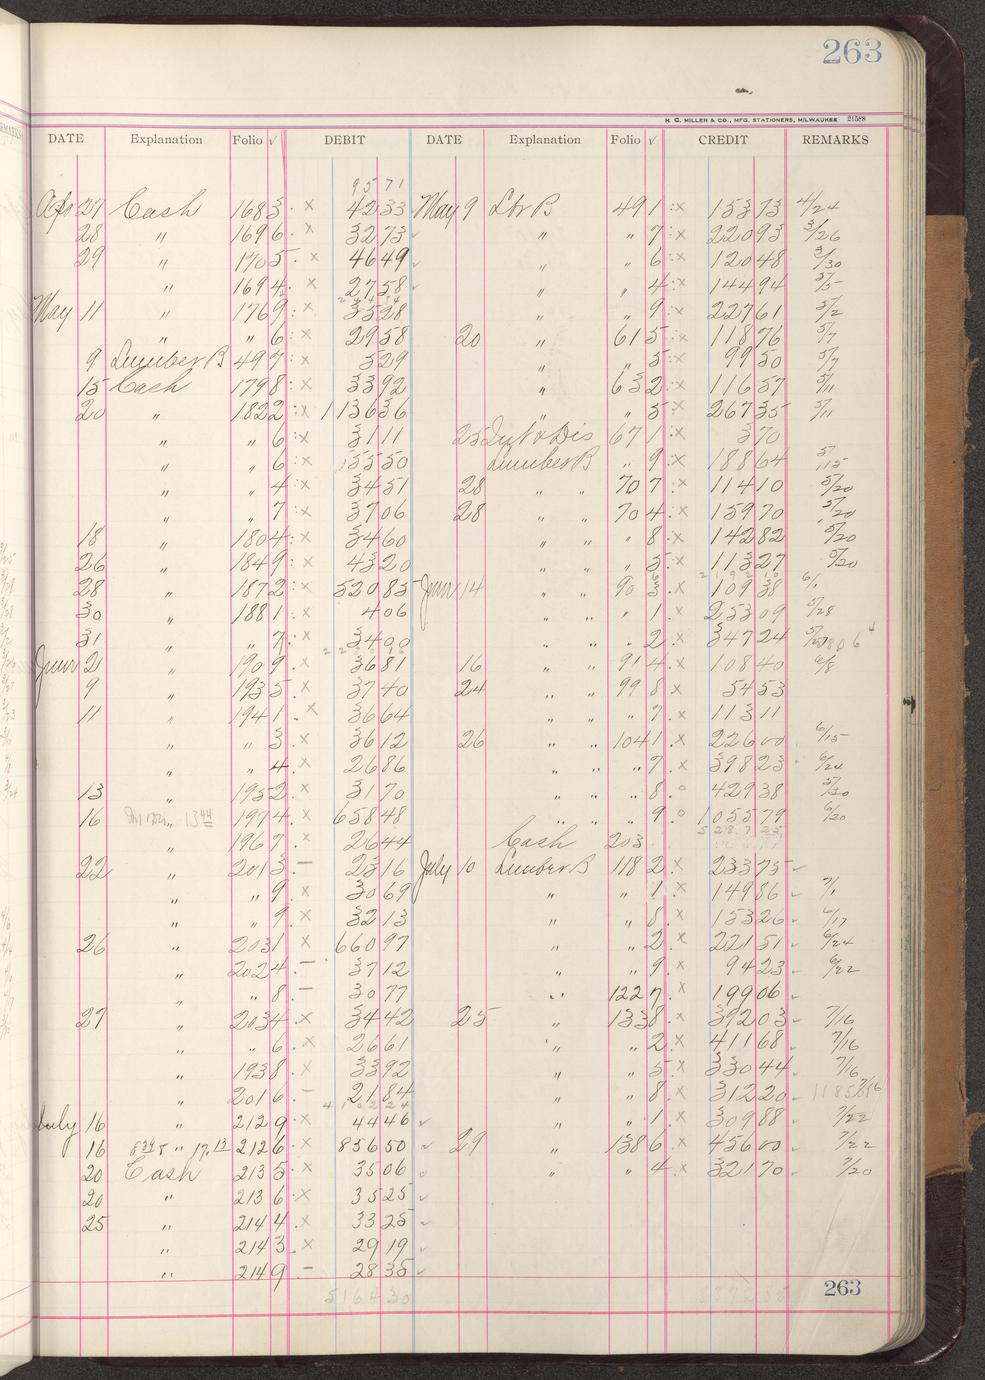 263
H. C. MILLER & CO., MFG. STATIONERS, MILWAUKEE 21588
DATE Explanation Folio √ DEBIT DATE Explanation Folio √ CREDIT REMARKS
95 71
Apr 27 Cash 168 3 · x 42 33 May 9 Lbr B 49 1 : x 153 73 4/24
28 " 169 6 · x 32 73 " " 7 : x 220 93 3/26
29 " 170 5 · x 46 49 " " 6 : x 120 48 3/30
" 169 4 · x 27 58 " " 4 : x 144 94 5/5
May 11 " 176 9 : x 35 28 " " 9 : x 227 61 5/2
" " 6 : x 29 58 20 " 61 5 : x 118 76 5/7
9 Lumber B 49 7 : x 5 29 " " 5 : x 99 50 5/7
15 Cash 179 8 : x 33 92 " 63 2 : x 116 57 5/11
20 " 182 2 : x 1136 36 " " 5 : x 267 35 5/11
" " 6 : x 31 11 25 Int & Dis 67 1 : x 3 70
" " 6 : x 55 50 Lumber B " 9 : x 188 64 5/15
" " 4 : x 34 51 28 " " 70 7 : x 114 10 5/20
" " 7 : x 37 06 28 " " 70 4 : x 159 70 5/20
18 " 180 4 : x 34 60 " " " 8 : x 142 82 5/20
26 " 184 9 : x 43 20 " " " 5 : x 113 27 5/20
28 " 187 2 : x 520 85 June 14 " " 90 3 · x 109 38 6/1
30 " 188 1 · x 4 06 " " " 1 · x 253 09 5/28
31 " " 7 · x 34 00 " " " 2 · x 347 24
June 2 " 190 9 · x 36 81 16 " " 91 4 · x 108 40 6/8
9 " 193 5 · x 37 40 24 " " 99 8 x 54 53
11 " 194 1 · x 36 64 " " " 7 · x 113 11
" " 3 · x 36 12 26 " " 104 1 · x 226 00 6/15
" " 4 · x 26 86 " " " 7 · x 398 23 6/24
13 " 195 2 · x 31 70 " " " 8 · o 429 38 5/30
16 " 13 44 197 4 · x 658 48 " " " 9 · o 1055 79 6/20
" 196 7 · x 26 44 Cash 203
22 " 201 3 – 23 16 July 10 Lumber B 118 2 · x 233 75
" " 9 · x 30 69 " " 1 · x 149 86 7/1
" " 9 x 32 13 " " 8 · x 153 26 6/17
26 " 203 1 x 660 97 " " 2 · x 221 51 6/24
" 202 4 – 37 12 " " 9 · x 94 23 6/22
" " 8 – 30 77 " 122 7 · x 199 06
27 " 203 4 · x 34 42 25 " 133 8 · x 392 03 7/16
" " 6 · x 26 61 " " 2 · x 411 68 7/16
" 193 8 · x 33 92 " " 5 · x 330 44 7/16
" 201 6 – 21 84 " " 8 · x 312 20 7/16
July 16 " 212 9 · x 44 46 " " 1 · x 309 88 7/22
16 " 17.13 212 6 · x 856 50 29 " 138 6 · x 456 00 7/22
20 Cash 213 5 · x 35 06 " " 4 · x 321 70 7/20
20 " 213 6 · x 35 25
25 " 214 4 · x 33 25
" 214 3 · x 29 19
" 214 9 – 28 35
5164 30
263